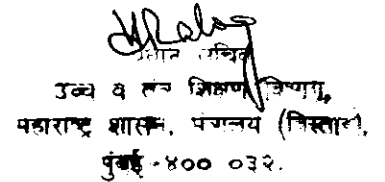 सचिव
उच्च व तंत्र शिक्षण विभाग,
महाराष्ट्र शासन, मंत्रालय (विस्तार),
मुंबई -४०० ०३२.